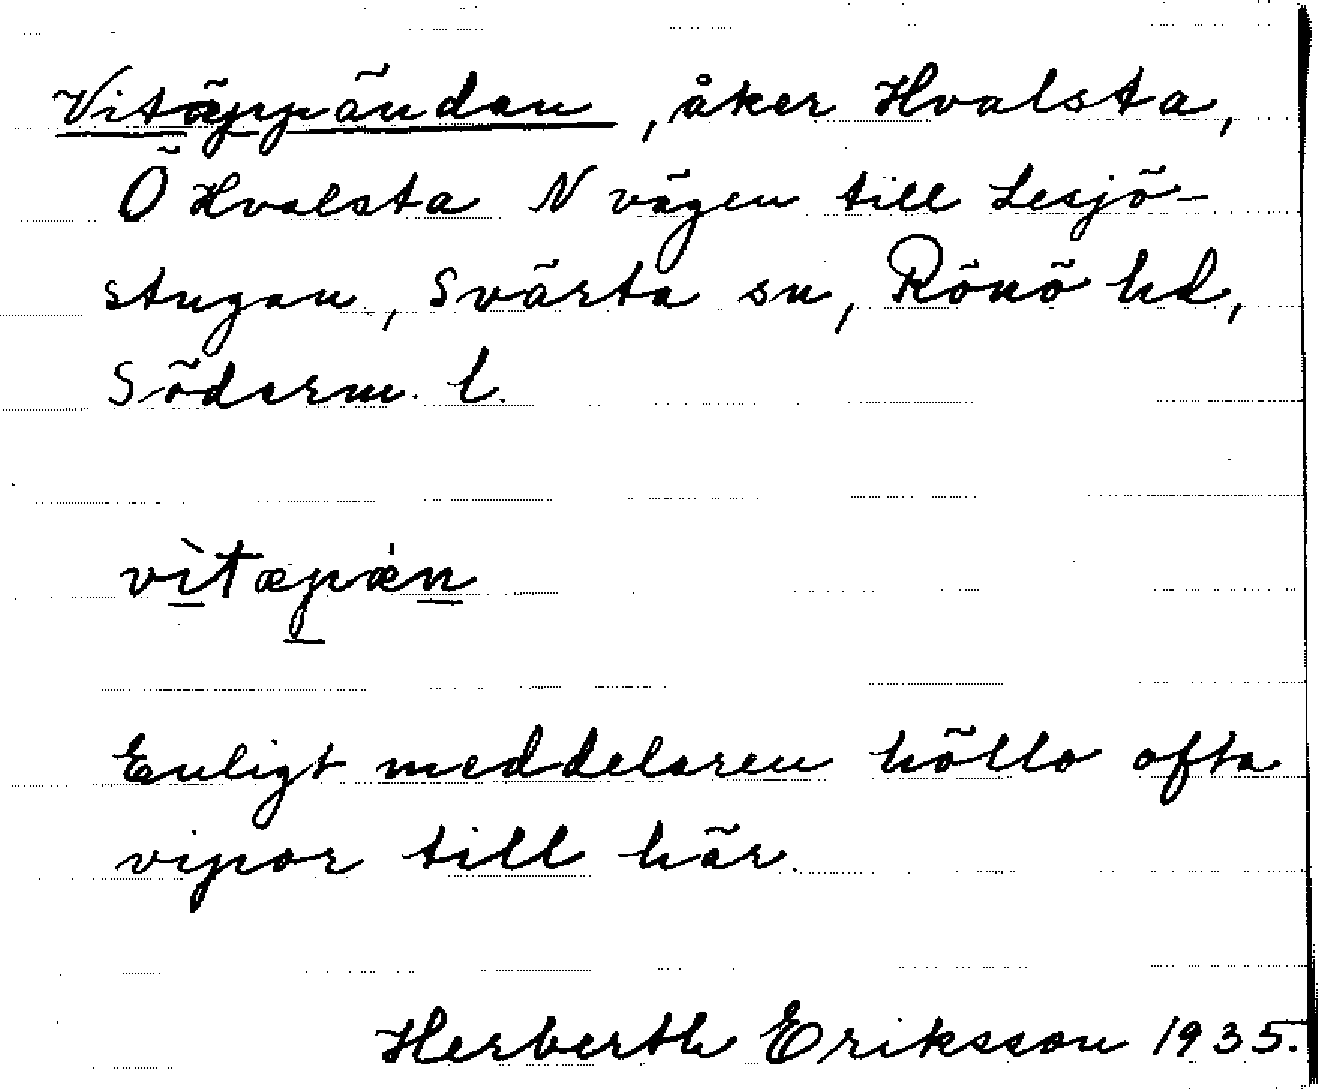 Vitäppändan, åker Hvalsta,
Ö Hvalsta N vägen till Lesjö-
stugan, Svärta sn, Rönö hd,
Söderm. l.
vìtæpæ̍n
Enligt meddelaren höllo ofta
vipor till här.
Herberth Eriksson 1935.